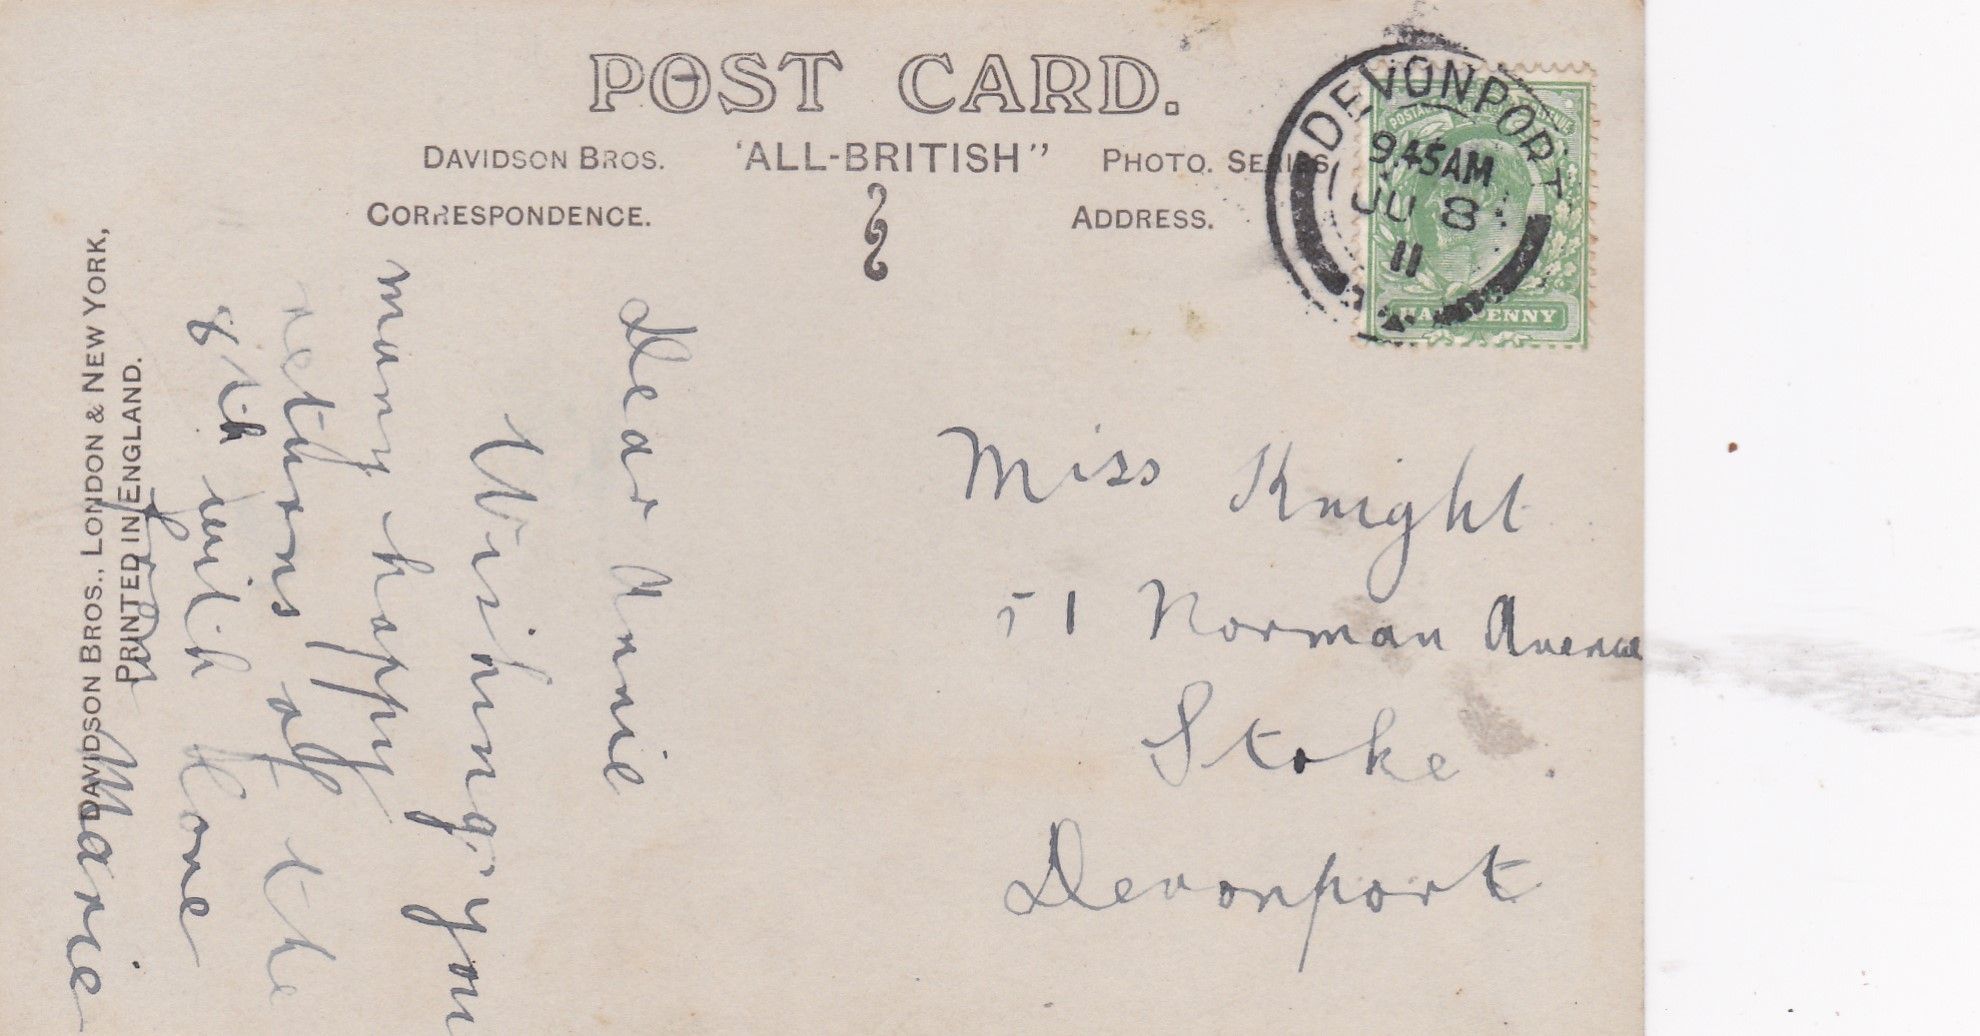 POST CARD.
DAVIDSON BROS. 'ALL-BRITISH" PHOTO. SERIES
CORRESPONDENCE. ADDRESS.
DEVONPORT
9.45AM
JU 8
11
HALFPENNY
Miss Knight
51 Norman Avenue
Stoke.
Devonport
Dear Annie
Wishing you
many happy
returns of the
8th with love
from Marie
DAVIDSON BROS., LONDON & NEW YORK,
PRINTED IN ENGLAND.